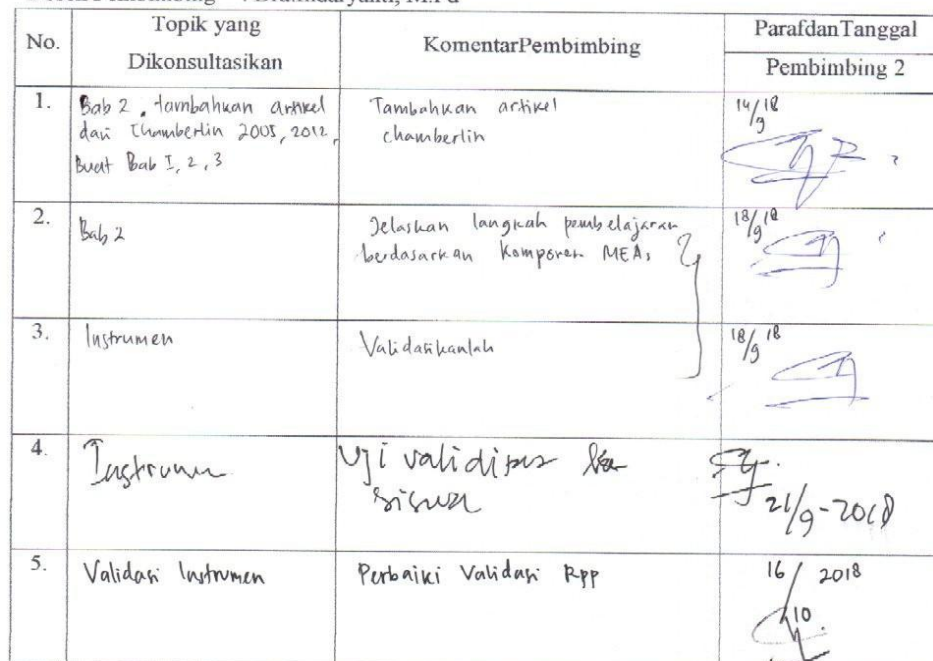 No.
Topik yang
Dikonsultasikan
KomentarPembimbing
ParafdanTanggal
Pembimbing 2
1.
Bab 2, tambahkan artikel
dari Chamberlin 2005, 2012,
Buat Bab I, 2, 3
Tambahkan artikel
chamberlin
14/9 18
2.
Bab 2
Jelaskan langkah pembelajaran
berdasarkan Komponen MEAs
18/9 18
3.
Instrumen
Validasikanlah
18/9 18
4.
Instrumen
Uji validitas ke
siswa
21/9-2018
5.
Validasi Instrumen
Perbaiki Validasi Rpp
16/10 2018